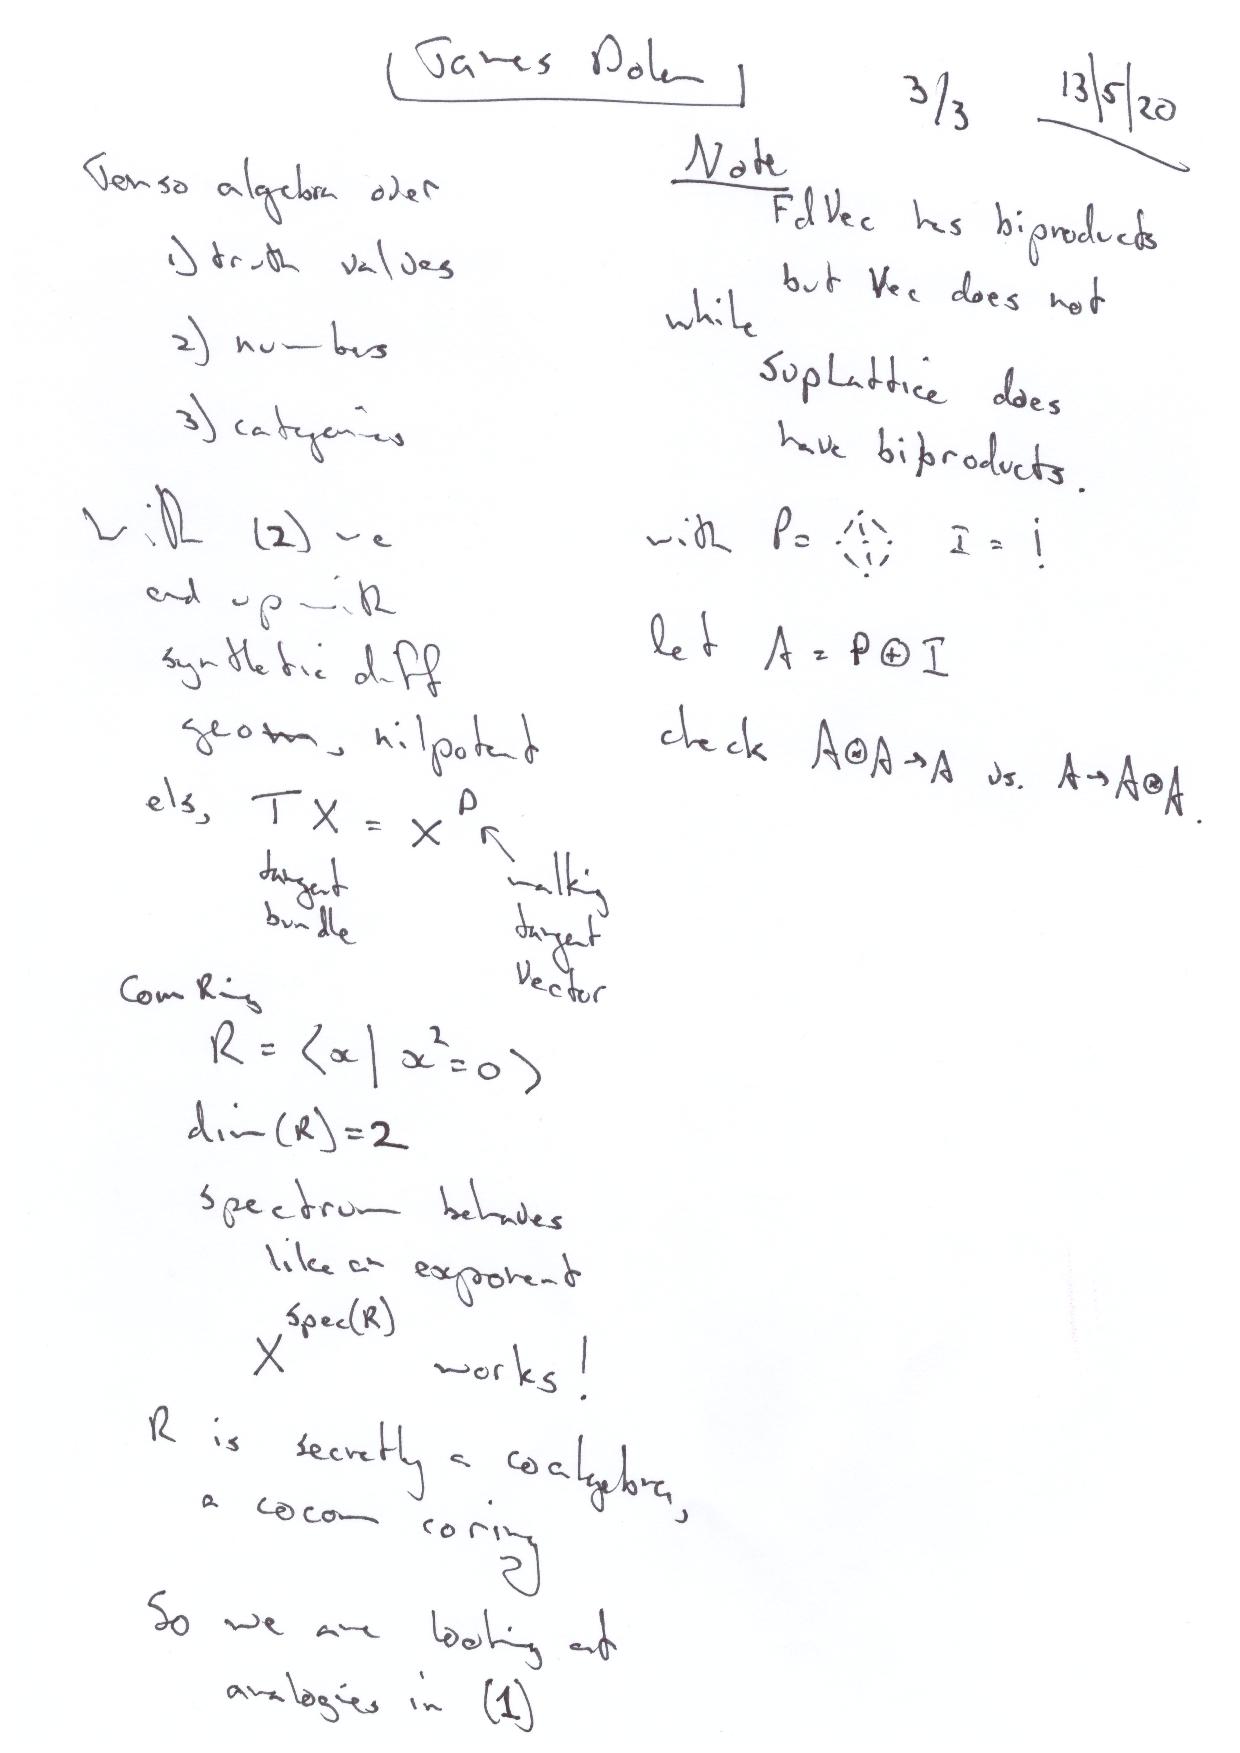 James Dolan
3/3
13/5/20
Tenso algebra over
1) truth values
2) numbers
3) categories
with (2) we
end up with
synthetic diff
geom, nilpotent
els, TX = X^D
tangent
bundle
walking
tangent
vector
Com Ring
R = ⟨x | x²=0⟩
dim(R)=2
spectrum behaves
like an exponent
X^spec(R) works!
R is secretly a coalgebra,
a cocom coring
So we are looking at
analogies in (1)
Note
FdVec has biproducts
but Vec does not
while
SupLattice does
have biproducts.
with P= I = !
let A = P⊕I
check A⊗A→A vs. A→A⊗A.